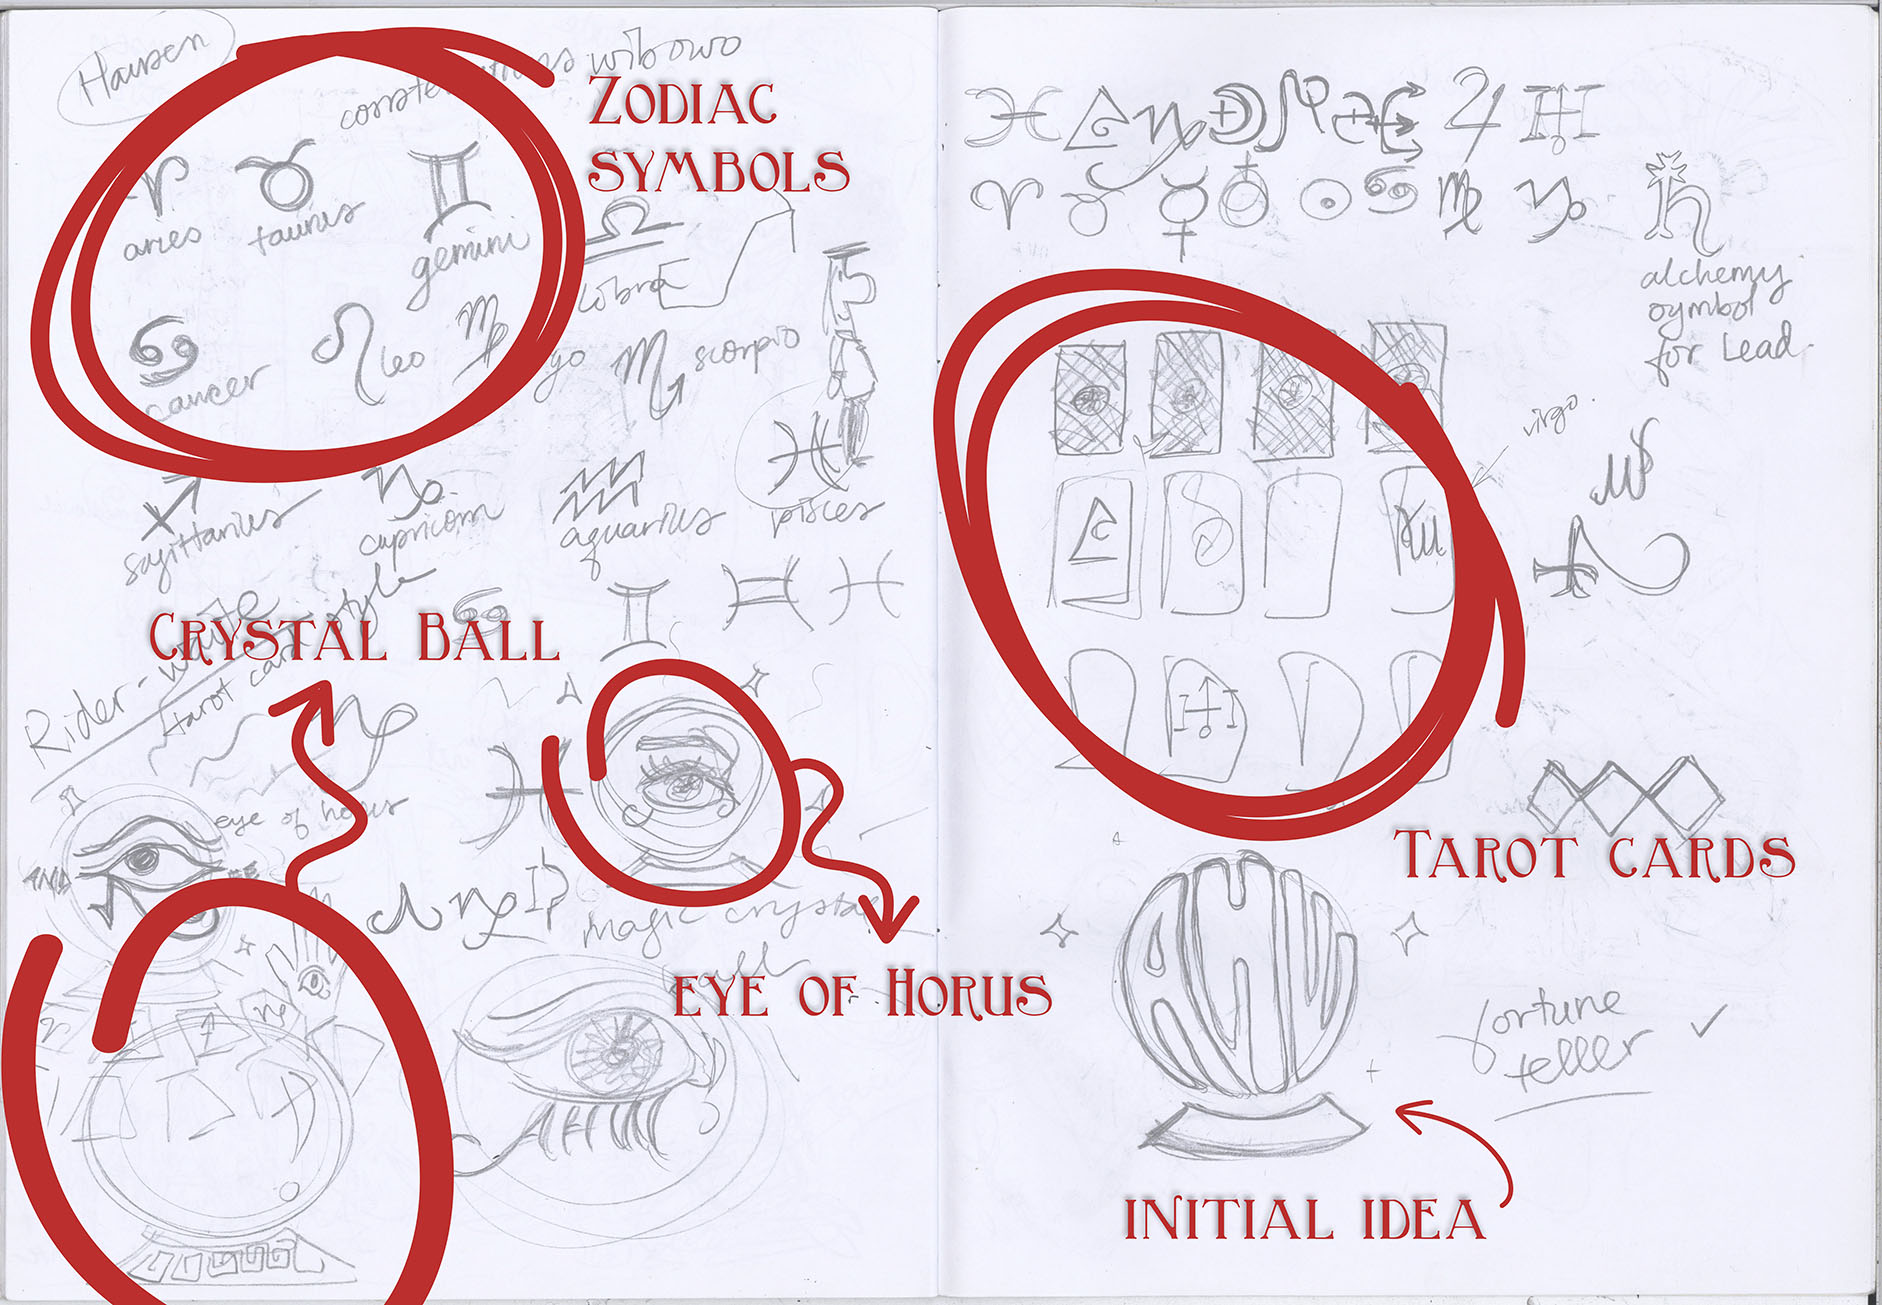 wibowo
ZODIAC
SYMBOLS
aries
taurus
gemini
cancer
leo
go
scorpio
sagittarius
capricorn
aquarius
pisces
CRYSTAL BALL
Rider-waite
tarot card style
eye of horus
magic crystal
ball
EYE OF HORUS
alchemy
symbol
for Lead.
virgo.
TAROT CARDS
AHW
fortune
teller
INITIAL IDEA